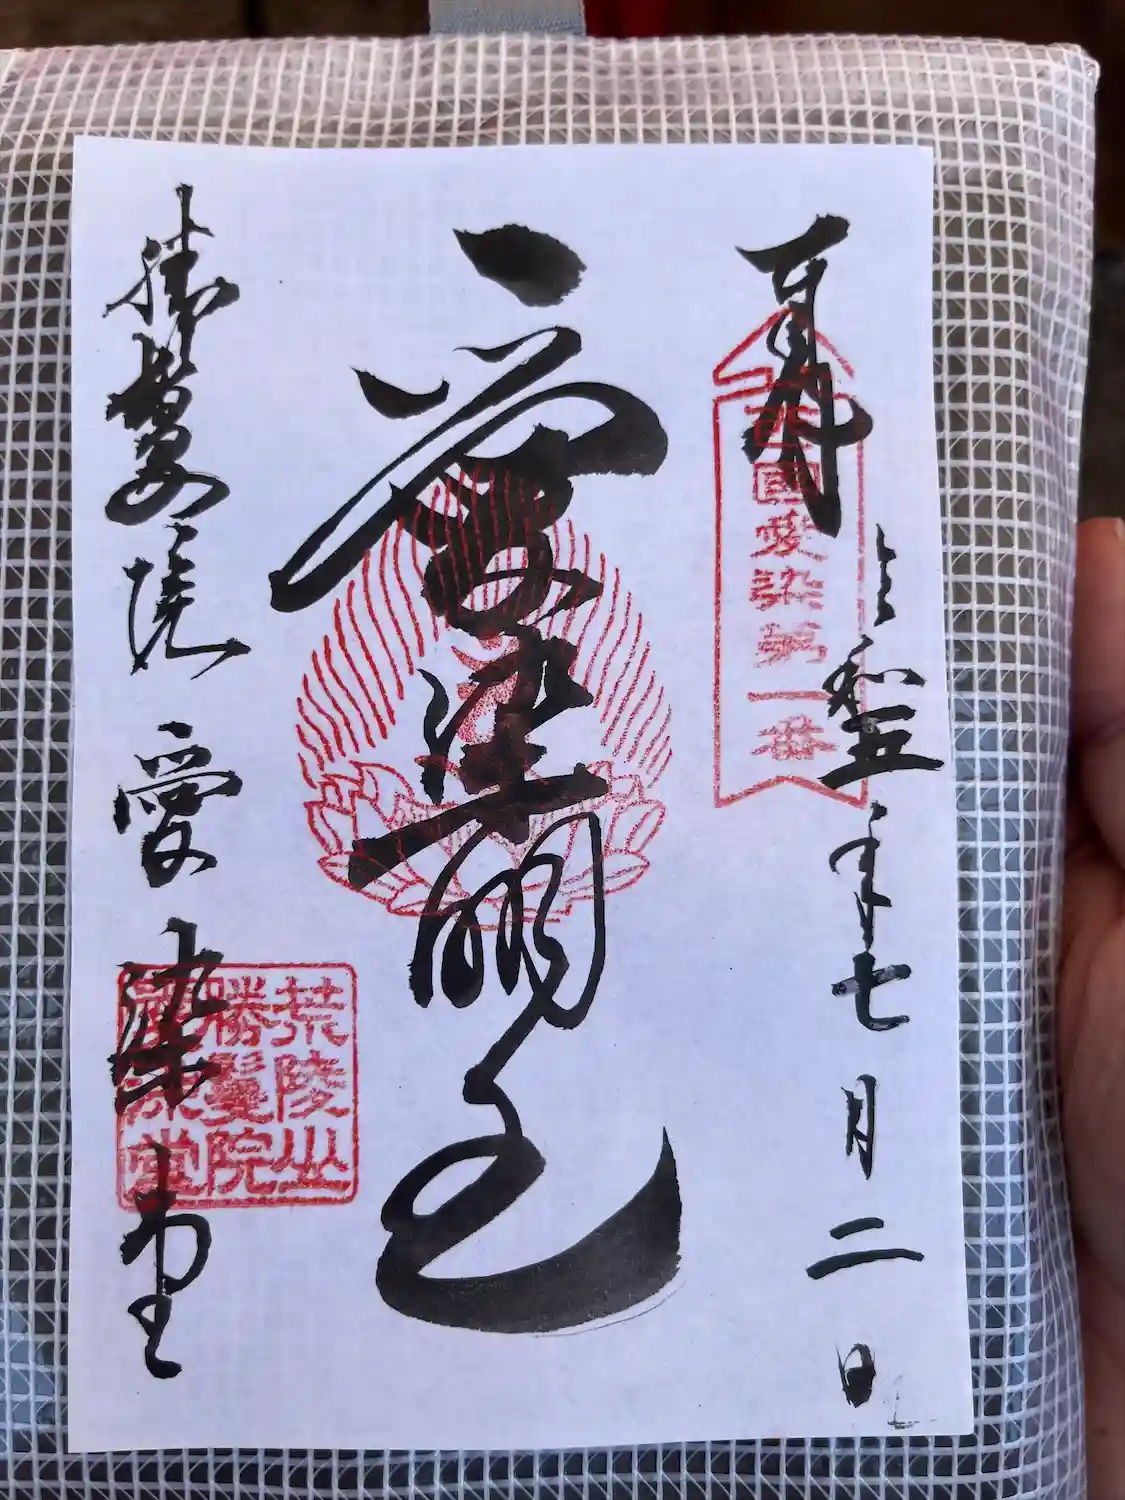 奉拝
西國愛染第一番
令和五年七月二日
愛染明王
勝鬘院 愛染堂
荒陵山
勝鬘院
愛染堂